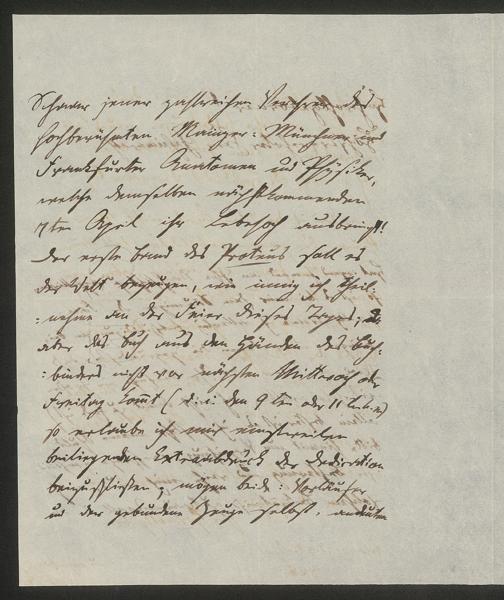 Schaar jener zahlreichen Verehrer des
hochberühmten Mainzer: Münchner und
Frankfurter Anatomen und Physiker,
welche demselben nächstkommenden
7ten April ihr Lebehoch ausbringt!
Der erste Band des Proteus soll es
der Welt bezeugen, wie innig ich Theil-
:nehme an der Feier dieses Tages; da
aber das Buch aus den Händen des Buch-
:binders nicht vor nächsten Mittwoch oder
Freitag komt (d. i. den 9ten oder 11ten)
so erlaube ich mir einstweilen
beiliegenden Extraabdruck der Dedication
beizuschließen; mögen beide: Vorläufer
und der gebundene Zeuge selbst, andeuten